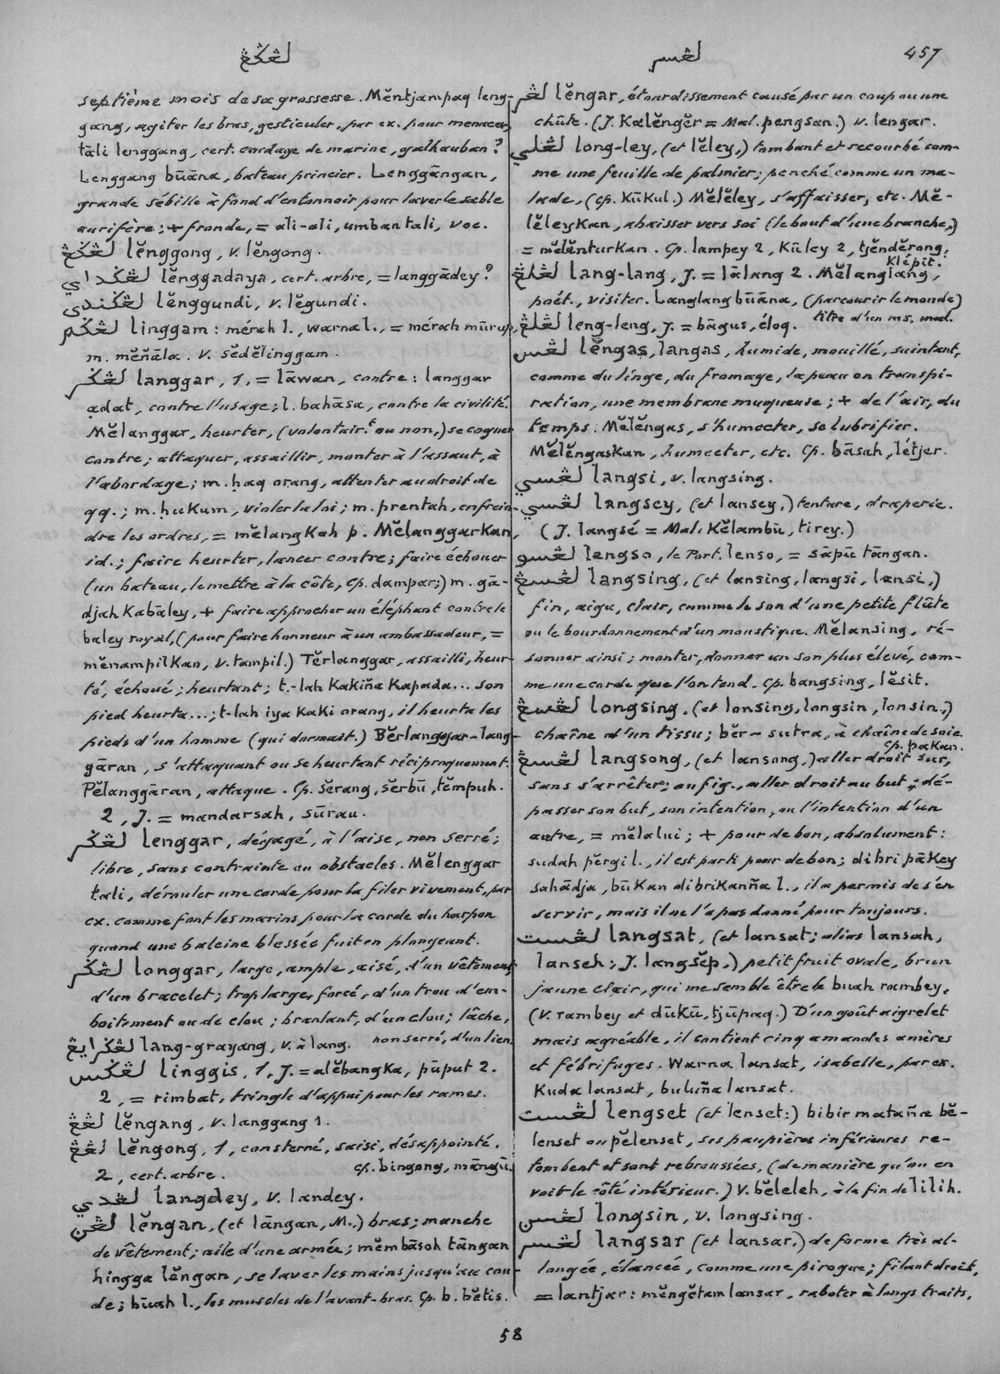 لڠݢڠ
لڠسر
457
septième mois de sa grossesse. Mĕntjampaq leng-
gang, agiter les bras, gesticuler, par ex. pour menacer,
tāli lenggang, cert. cordage de marine, galhauban?
Lenggang būāna, bateau princier. Lenggāngan,
grande sébille à fond d'entonnoir pour laver le sable
aurifère; + fronde, = ali-ali, umban tali, voc.
لڠݢڠ lĕnggong, v. lĕngong.
لڠݢداي lĕnggadaya, cert. arbre, = langgādey?
لڠݢندي lĕnggundi, v. lĕgundi.
لڠݢم linggam: mérah l., warna l., = mérah mūrup,
m. mĕñāla. v. sĕdĕlinggam.
لڠݢر langgar, 1, = lāwan, contre: langgar
adat, contre l'usage; l. bahāsa, contre la civilité.
Mĕlanggar, heurter, (volontair.t ou non,) se cogner
contre; attaquer, assaillir, monter à l'assaut, à
l'abordage; m. ḥaq orang, attenter au droit de
qq.; m. ḥukum, violer la loi; m. prentah, enfrein-
dre les ordres, = mĕlangkah p. Mĕlanggarkan,
id.; faire heurter, lancer contre; faire échouer
(un bateau, le mettre à la côte, Cp. dampar;) m. gā-
djah Kabāley, + faire approcher un éléphant contre le
baley royal, (pour faire honneur à un ambassadeur, =
mĕnampilkan, v. tampil.) Tĕrlanggar, assailli, heur-
té, échoué; heurtant; t.-lah Kakiña Kapada... son
pied heurta...; t-lah iya Kaki orang, il heurta les
pieds d'un homme (qui dormait.) Bĕrlanggar-lang-
gāran, s'attaquant ou se heurtant réciproquement.
Pĕlanggāran, attaque. Cp. sĕrang, sĕrbū, tĕmpuh.
2, J. = mandarsah, sūrau.
لڠݢر lenggar, dégagé, à l'aise, non serré;
libre, sans contrainte ou obstacles. Mĕlenggar
tali, dérouler une corde pour la filer vivement, par
ex. comme font les marins pour la corde du harpon
quand une baleine blessée fuit en plongeant.
لڠݢر longgar, large, ample, aisé, d'un vêtement,
d'un bracelet; trop large, forcé, d'un trou d'em-
boitement ou de clou; branlant, d'un clou; lâche,
non serré, d'un lien.
لڠݢرايڠ lang-grayang, v. à lang.
لڠݢس linggis, 1, J. = alĕbangka, pūput 2.
2, = rimbat, tringle d'appui pour les rames.
لڠڠ lĕngang, v. langgang 1.
لڠڠ lĕngong, 1, consterné, saisi, désappointé.
Cp. bingong, māngū.
2, cert. arbre.
لڠدي langdey, v. landey.
لڠن lĕngan, (et lāngan, M.) bras; manche
de vêtement; aile d'une armée; mĕmbāsoh tāngan
hingga lĕngan, se laver les mains jusqu'au cou-
de; būah l., les muscles de l'avant-bras. Cp. b. bĕtis.
لڠر lĕngar, étourdissement causé par un coup ou une
chûte. (J. Kalĕngĕr = Mal. pengsan.) v. lengar.
لڠلي long-ley, (et lĕley,) tombant et recourbé com-
me une feuille de palmier; penché comme un ma-
lade, (cp. Kūkul.) Mĕlĕley, s'affaisser, etc. Mĕ-
lĕleykan, abaisser vers soi (le bout d'une branche,)
= mĕlĕnturkan. Cp. lampey 2, Kūley 2, tjĕndĕrong,
Klépit.
لڠلڠ lang-lang, J. = lālang 2. Mĕlanglang,
poét., visiter. Langlang būāna, (parcourir le monde)
titre d'un ms. mal.
لڠلڠ leng-leng, J. = bāgus, élog.
لڠس lĕngas, langas, humide, mouillé, suintant,
comme du linge, du fromage, la peau en transpi-
ration, une membrane muqueuse; + de l'air, du
temps. Mĕlĕngas, s'humecter, se lubrifier.
Mĕlĕngaskan, humecter, etc. Cp. bāsah, létjer.
لڠسي langsi, v. langsing.
لڠسي langsey, (et lansey,) tenture, draperie.
(J. langsé = Mal. Kĕlambū, tirey.)
لڠسو lengso, le Port. lenso, = sāpū tāngan.
لڠسڠ langsing, (et lansing, langsi, lansi,)
fin, aigu, clair, comme le son d'une petite flûte
ou le bourdonnement d'un moustique. Mĕlansing, ré-
sonner ainsi; monter, donner un son plus élevé, com-
me une corde que l'on tend. Cp. bangsing, lĕsit.
لڠسڠ longsing. (et lonsing, longsin, lonsin,)
chaîne d'un tissu; bĕr- sutra, à chaîne de soie.
Cp. pakan.
لڠسڠ langsong, (et lansong,) aller droit sur,
sans s'arrêter; au fig., aller droit au but; dé-
passer son but, son intention, ou l'intention d'un
autre, = mĕlalui; + pour de bon, absolument:
sudah pĕrgi l., il est parti pour de bon; di bri pākey
sahādja, būkan di brikanña l., il a permis de s'en
servir, mais il ne l'a pas donné pour toujours.
لڠست langsat, (et lansat; alias lansah,
lanseh; J. langsĕp,) petit fruit ovale, brun
jaune clair, qui me semble être le buah rambey,
(V. rambey et dūkū, tjūpaq.) D'un goût aigrelet
mais agréable, il contient cinq amandes amères
et fébrifuges. Warna lansat, isabelle, par ex.
Kuda lansat, buluña lansat.
لڠست lengset (et lenset:) bibir mataña bĕ-
lenset ou pĕlenset, ses paupières inférieures re-
tombent et sont rebroussées, (de manière qu'on en
voit le côté intérieur.) V. bĕleleh, à la fin de lilih.
لڠسن longsin, v. longsing.
لڠسر langsar (et lansar,) de forme très al-
longée, élancée, comme une pirogue; filant droit,
= lantjar: mĕngĕtam lansar, raboter à longs traits,
58